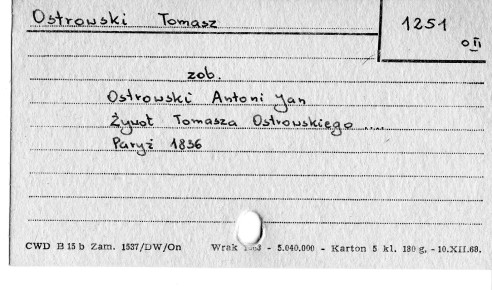 Ostrowski Tomasz
1251
o II
zob.
Ostrowski Antoni Jan
Żywot Tomasza Ostrowskiego ....
Paryż 1836
CWD B 15 b Zam. 1537/DW/On Wrak - 5.040.000 - Karton 5 kl. 180 g. - 10.XII.68.